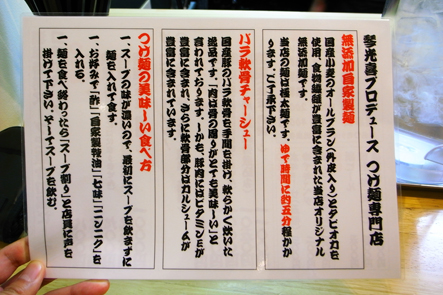 琴光喜プロデュース つけ麺専門店
無添加自家製麺
国産小麦のオールブラン(外皮入り)とタピオカを
使用、食物繊維が豊富に含まれた当店オリジナル
無添加麺です。
当店の麺は極太麺です。ゆで時間に約五分程かか
ります。ご了承下さい。
バラ軟骨チャーシュー
国産豚のバラ軟骨を手間を掛け、軟らかく炊いた
逸品です。「肉は骨の周りがとても美味〜い」と
言われております。しかも、豚肉にはビタミンEが
豊富に含まれ、さらに軟骨部分はカルシュームが
豊富に含まれています。
つけ麺の美味〜い食べ方
一、スープの味が濃いので、最初にスープを飲まずに
麺を入れて食す。
一、お好みで「酢」「自家製辣油」「七味」「ニンニク」を
入れる。
一、麺を食べ終わったら「スープ割り」と店員に声を
掛けて下さい。そしてスープを飲む。